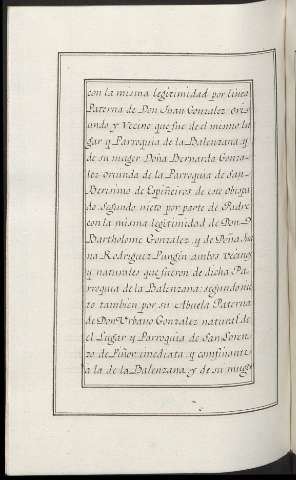 con la misma legitimidad por linea
Paterna de Don Juan Gonzalez oris
undo y Vecino que fue de el mismo lu
gar y Parroquia de la Balenzana, y
de su muger Doña Bernarda Gonza
lez oriunda de la Parroquia de San
Berisimo de Espiñeiros de este obispa
do. Segundo nieto por parte de Padre
con la misma legitimidad de Don
Bartholome Gonzalez, y de Doña Jua
na Rodriguez Pungin ambos vecinos
y naturales que fueron de dicha Pa
rroquia de la Balenzana: segundo nie
to tambien por su Abuela Paterna
de Don Urbano Gonzalez natural de
el Lugar y Parroquia de San Loren
zo de Piñor imediata, y confinante
a la de la Balenzana, y de su muge